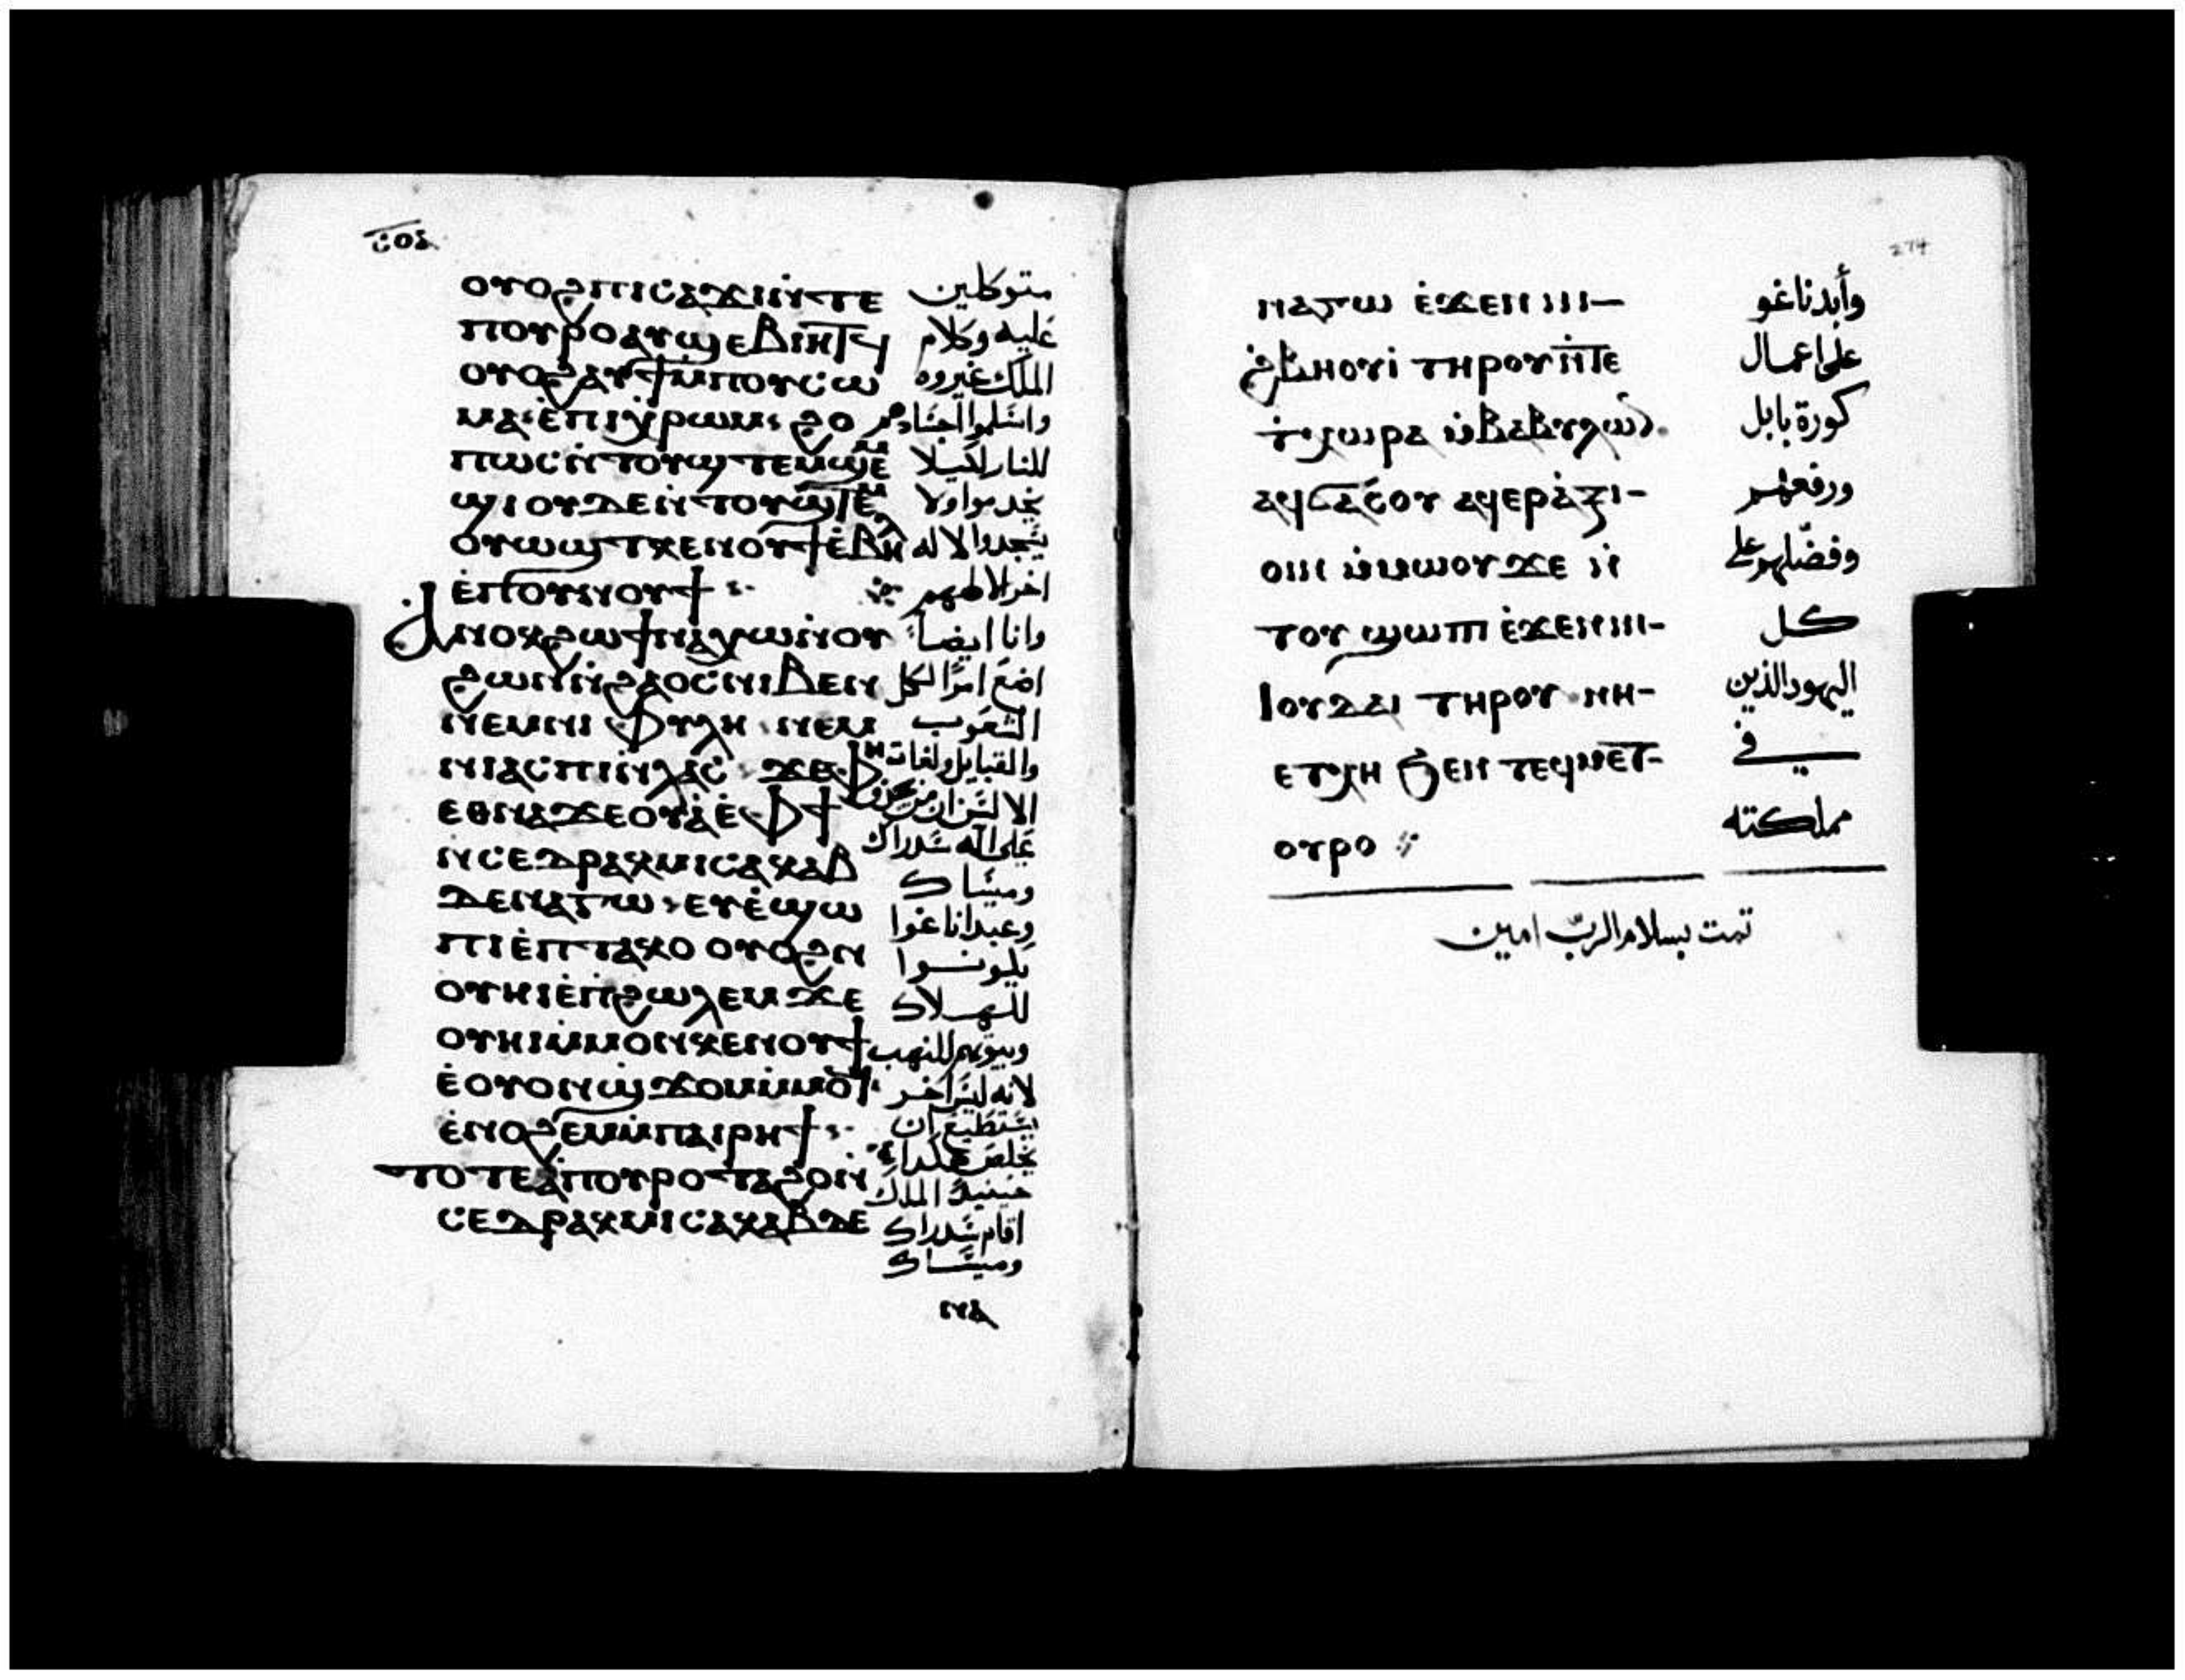 ⲟⲩⲟϩ ⲡⲓⲥⲁϫⲓ ⲛ̀ⲧⲉ متوكلين
ⲡⲟⲩⲣⲟ ⲁⲩϣⲉⲃⲓⲏⲧϥ عليه وكلام
ⲟⲩⲟϩ ⲁⲩϯ ⲙ̀ⲡⲟⲩⲥⲱ الملك غيروه
ⲙⲁ ⲉ̀ⲡⲓⲭ̀ⲣⲱⲙ ϩⲟ واسلموا اجسادهم
ⲡⲱⲥ ⲛ̀ⲧⲟⲩϣⲧⲉⲙϣⲉⲙ للنار لكيلا
ϣⲓ ⲟⲩⲇⲉ ⲛ̀ⲧⲟⲩϣⲧⲉⲙ يخدموا ولا
ⲟⲩⲱϣⲧ ⲕⲉⲛⲟⲩϯ ⲉ̀ⲃⲏⲗ يسجدوا لاله
ⲉ̀ⲡⲟⲩⲛⲟⲩϯ اخر الا الههم
ⲁⲛⲟⲕ ϩⲱ ϯⲛⲁⲭⲱ ⲛ̀ⲟⲩ وانا ايضا
ϩⲱⲛ ⲛ̀ⲗⲁⲟⲥ ⲛⲓⲃⲉⲛ اضع امرا لكل
ⲛⲉⲙ ⲛⲓⲫⲩⲗⲏ ⲛⲉⲙ الشعوب
ⲛⲓⲁⲥⲡⲓ ⲛ̀ⲗⲁⲥ ϫⲉ ⲫⲏ والقبايل ولغات
ⲉⲑⲛⲁϫⲉ ⲟⲩⲁ̀ ⲉ̀ⲫϯ الالسن ان من يجدف
ⲛ̀ⲥⲉⲇⲣⲁⲕ ⲙⲓⲥⲁⲕ ⲁⲃ على اله سدراك
ⲇⲉⲛⲁⲅⲱ ⲉⲩⲉ̀ϣⲱ وميساك
ⲡⲓ ⲉ̀ⲡⲧⲁⲕⲟ ⲟⲩⲟϩ ⲛ وعبداناغوا
ⲟⲩⲏⲓ ⲉ̀ⲡ̀ϩⲱⲗⲉⲙ ϫⲉ يكونوا
ⲟⲩⲏⲓ ⲙ̀ⲙⲟⲛ ⲕⲉⲛⲟⲩϯ للهلاك
ⲉ̀ⲟⲩⲟⲛ ϣ̀ϫⲟⲙ ⲙ̀ⲙⲟϥ وبيوتهم للنهب
ⲉ̀ⲛⲟϩⲉⲙ ⲙ̀ⲡⲁⲓⲣⲏϯ لانه ليس اخر
ⲧⲟⲧⲉ ⲁ̀ⲡⲟⲩⲣⲟ ⲧⲁϩⲟ ⲛ̀ يستطيع ان
ⲥⲉⲇⲣⲁⲕ ⲙⲓⲥⲁⲕ ⲁⲃⲇⲉ يخلص هكذا
حينيذ الملك
اقام سدراك
وميساك
ⲛⲁ
274
ⲛⲁⲅⲱ ⲉ̀ϫⲉⲛ ⲛⲓ- وأبدناغو
ϩ̀ⲃⲏⲟⲩⲓ̀ ⲧⲏⲣⲟⲩ ⲛ̀ⲧⲉ على اعمال
ϯⲭⲱⲣⲁ ⲙ̀ⲃⲁⲃⲩⲗⲱⲛ كورة بابل
ⲁϥϭⲁⲥⲟⲩ ⲁϥⲉⲣⲁ̀ⲝⲓ- ورفعهم
ⲟⲓⲛ ⲙ̀ⲙⲱⲟⲩ ϫⲉ ⲛ̀ وفضلهم على
ⲧⲟⲩϣⲱⲡⲓ ⲉ̀ϫⲉⲛ ⲛⲓ- كل
ⲓⲟⲩⲇⲁⲓ ⲧⲏⲣⲟⲩ ⲛⲏ- اليهود الذين
ⲉⲧⲭⲏ ϧⲉⲛ ⲧⲉϥⲙⲉⲧ- في
ⲟⲩⲣⲟ مملكته
تمت بسلام الرب امين